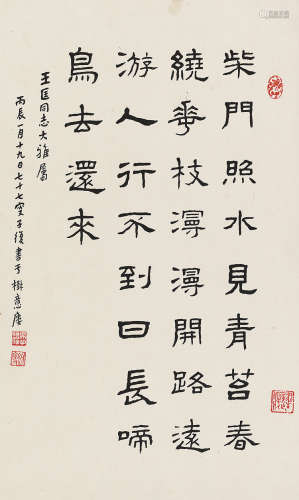 柴門照水見青苔春
繞華枝漫漫開路遠
游人行不到日長啼
鳥去還來
王匡同志大雅屬
丙辰一月十九日七十七叟子復書于埜意廔